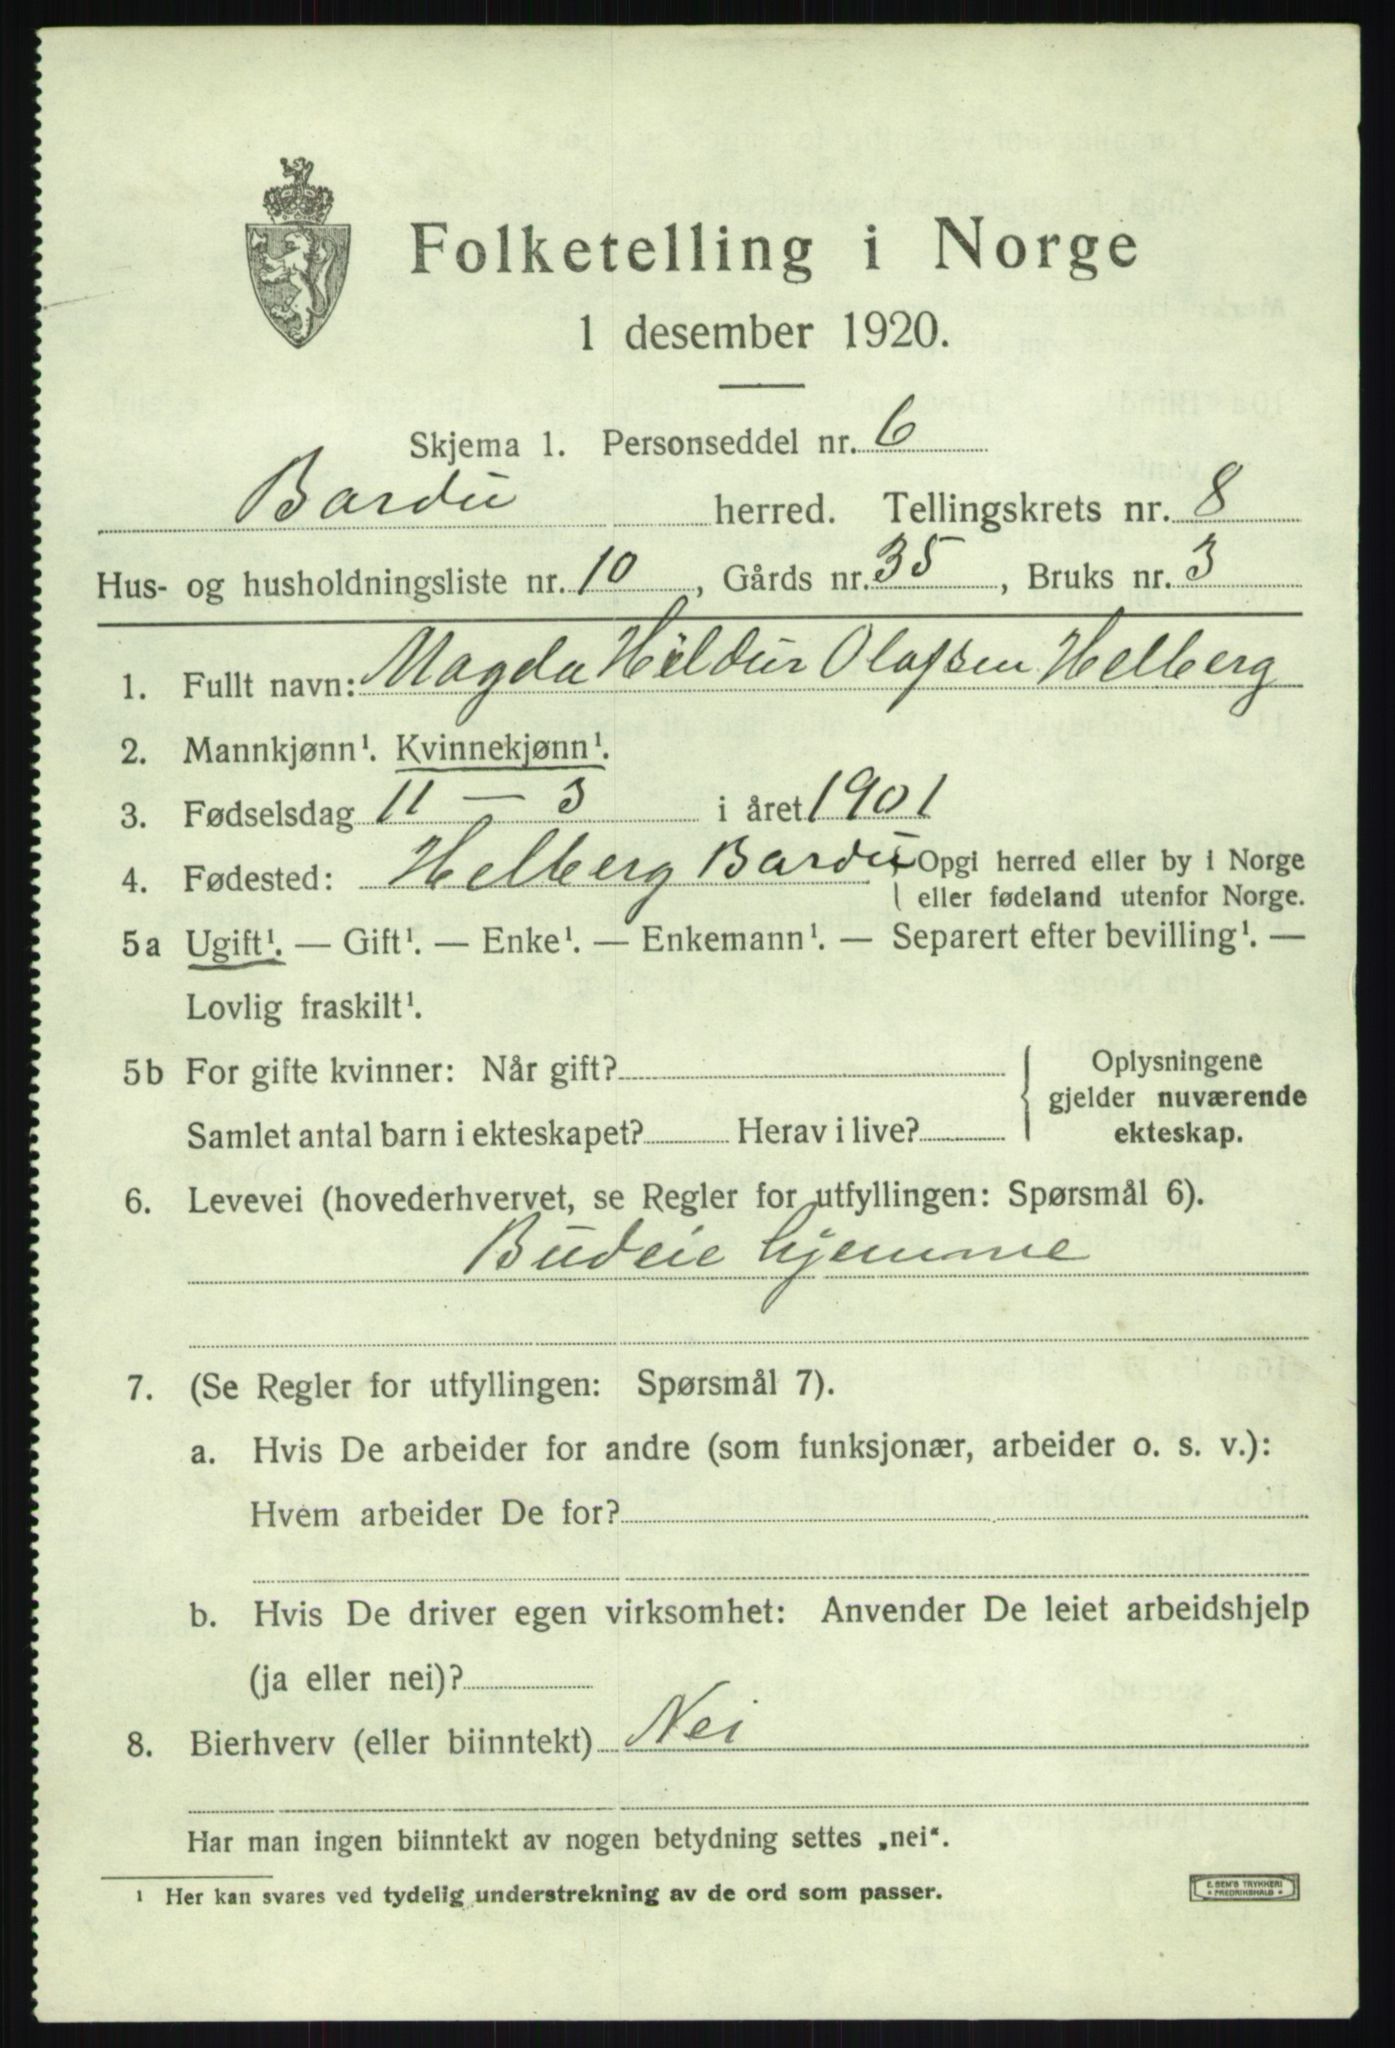 Folketelling i Norge
1 desember 1920.
Skjema 1. Personseddel nr. 6
Bardu herred. Tellingskrets nr. 8
Hus- og husholdningsliste nr. 10, Gårds nr. 35, Bruks nr. 3
1. Fullt navn: Magda Hildur Olafsen Helberg
2. Mannkjønn¹. Kvinnekjønn¹.
3. Fødselsdag 11 — 3 i året 1901
4. Fødested: Helberg Bardu { Opgi herred eller by i Norge
eller fødeland utenfor Norge.
5a Ugift¹. — Gift¹. — Enke¹. — Enkemann¹. — Separert efter bevilling¹. —
Lovlig fraskilt¹.
5b For gifte kvinner: Når gift?
Samlet antal barn i ekteskapet? Herav i live?
{ Oplysningene
gjelder nuværende
ekteskap.
6. Levevei (hovederhvervet, se Regler for utfyllingen: Spørsmål 6).
Budeie hjemme
7. (Se Regler for utfyllingen: Spørsmål 7).
a. Hvis De arbeider for andre (som funksjonær, arbeider o. s. v.):
Hvem arbeider De for?
b. Hvis De driver egen virksomhet: Anvender De leiet arbeidshjelp
(ja eller nei)?
8. Bierhverv (eller biinntekt) Nei
Har man ingen biinntekt av nogen betydning settes „nei“.
¹ Her kan svares ved tydelig understrekning av de ord som passer.
E. SEM'S TRYKKERI
• FREDRIKSHALD •